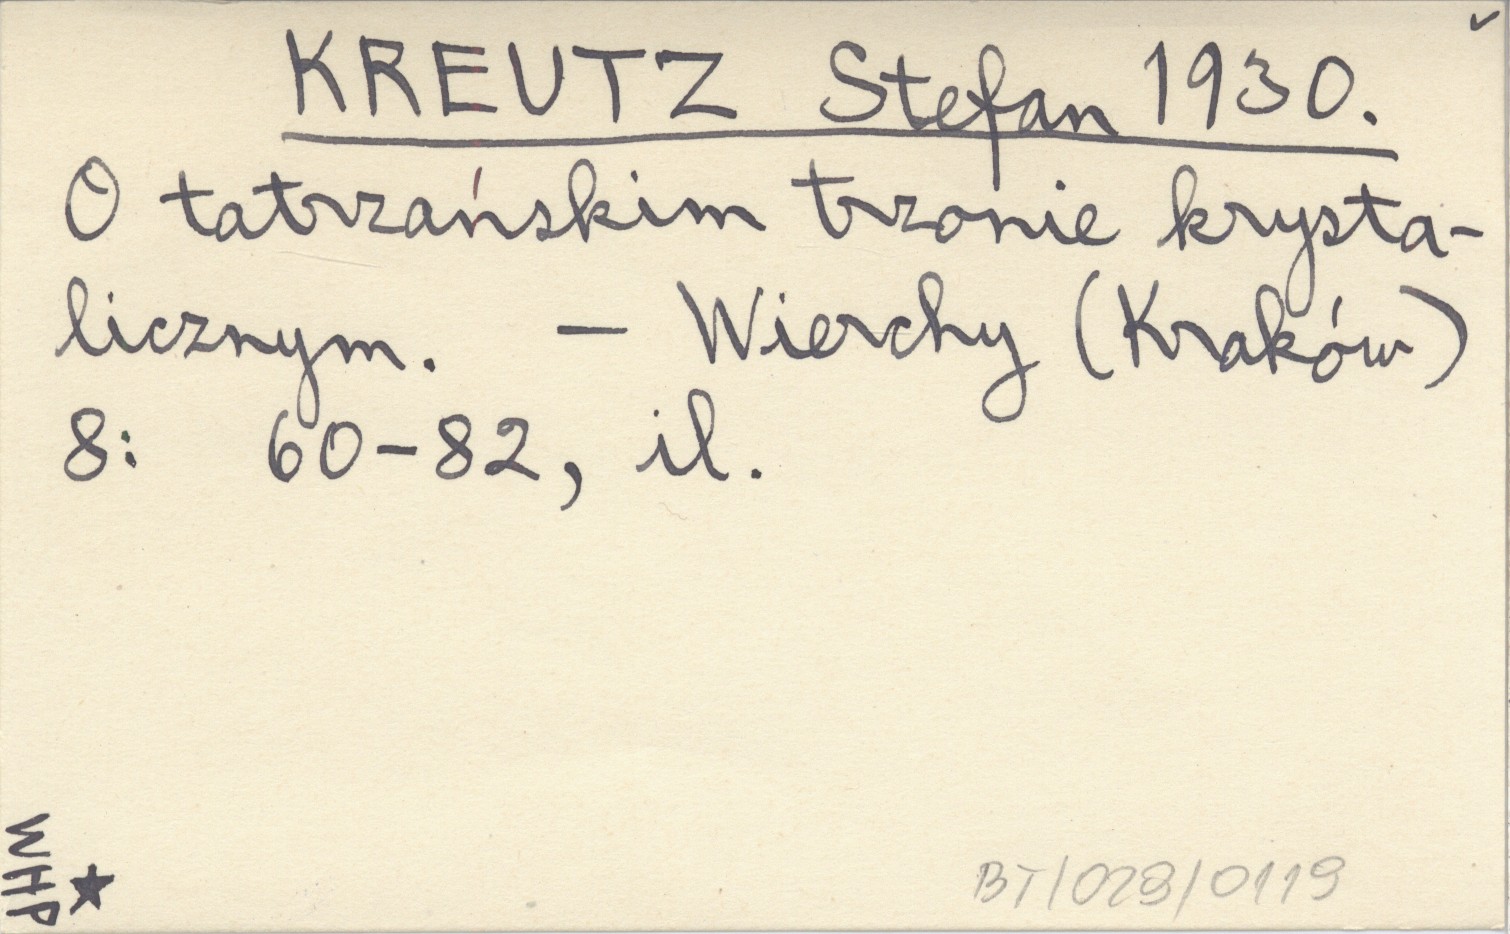 KREUTZ Stefan 1930.
O tatrzańskim trzonie krysta-
licznym. – Wierchy (Kraków)
8: 60-82, il.
WHP
BT/028/0119